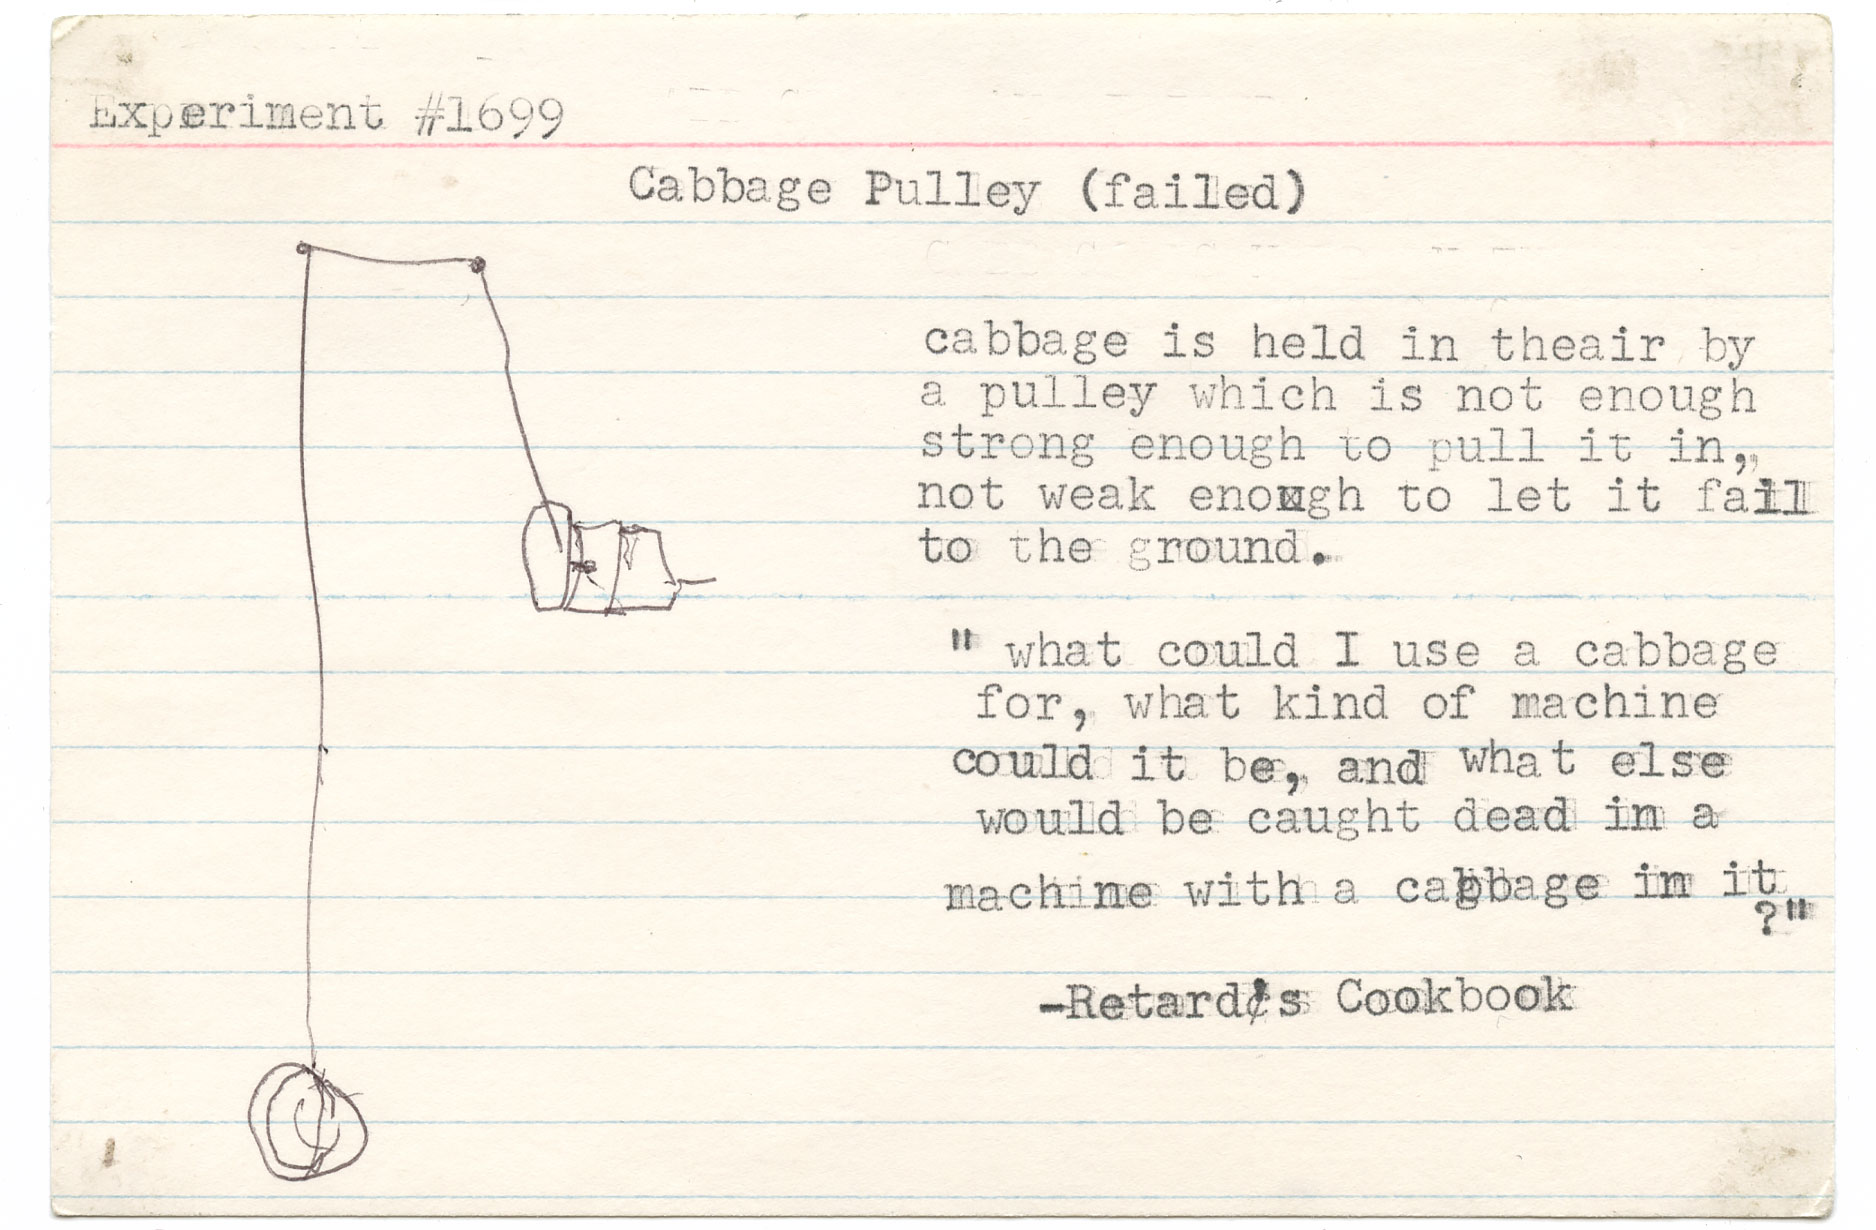 Experiment #1699
Cabbage Pulley (failed)
cabbage is held in theair by
a pulley which is not enough
strong enough to pull it in,,
not weak enough to let it fall
to the ground.
" what could I use a cabbage
for, what kind of machine
could it be, and what else
would be caught dead in a
machine with a cabbage in it
?"
-Retard's Cookbook